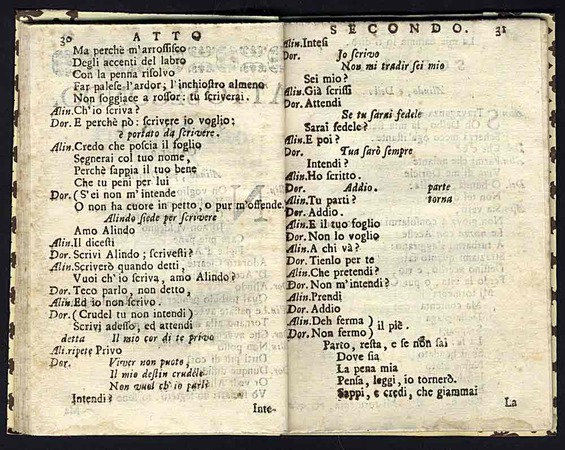 30 ATTO
Ma perchè m'arrossisco
Degli accenti del labro
Con la penna risolvo
Far palese l'ardor; l'inchiostro almeno
Non soggiace a rossor: tu scriverai.
Alin. Ch'io scriva?
Dor. E perchè nò: scrivere io voglio;
è portato da scrivere.
Alin. Credo che poscia il foglio
Segnerai col tuo nome,
Perchè sappia il tuo bene
Che tu peni per lui
Dor. (S'ei non m'intende
O non ha cuore in petto, o pur m'offende.
Alindo siede per scrivere
Amo Alindo
Alin. Il dicesti
Dor. Scrivi Alindo; scrivesti?
Alin. Scriverò quando detti,
Vuoi ch'io scriva, amo Alindo?
Dor. Teco parlo, non detto,
Alin. Ed io non scrivo.
Dor. (Crudel tu non intendi)
Scrivi adesso, ed attendi
detta Il mio cor di te privo
Ali. ripete Privo
Dor. Viver non puote,
Il mio destin crudele
Non vuol ch'io parli
Intendi?
Inte-
SECONDO. 31
Alin. Intesi
Dor. Io scrivo
Non mi tradir sei mio
Sei mio?
Alin. Già scrissi
Dor. Attendi
Se tu sarai fedele
Sarai fedele?
Alin. E poi?
Dor. Tua sarò sempre
Intendi?
Alin. Ho scritto.
Dor. Addio. parte
Alin. Tu parti? torna
Dor. Addio.
Alin. E il tuo foglio
Dor. Non lo voglio
Alin. A chi và?
Dor. Tienlo per te
Alin. Che pretendi?
Dor. Non m'intendi?
Alin. Prendi
Dor. Addio
Alin. Deh ferma )
Dor. Non fermo ) il piè.
Parto, resta, e se non sai
Dove sia
La pena mia
Pensa, leggi, io tornerò.
Sappi, e credi, che giammai
La